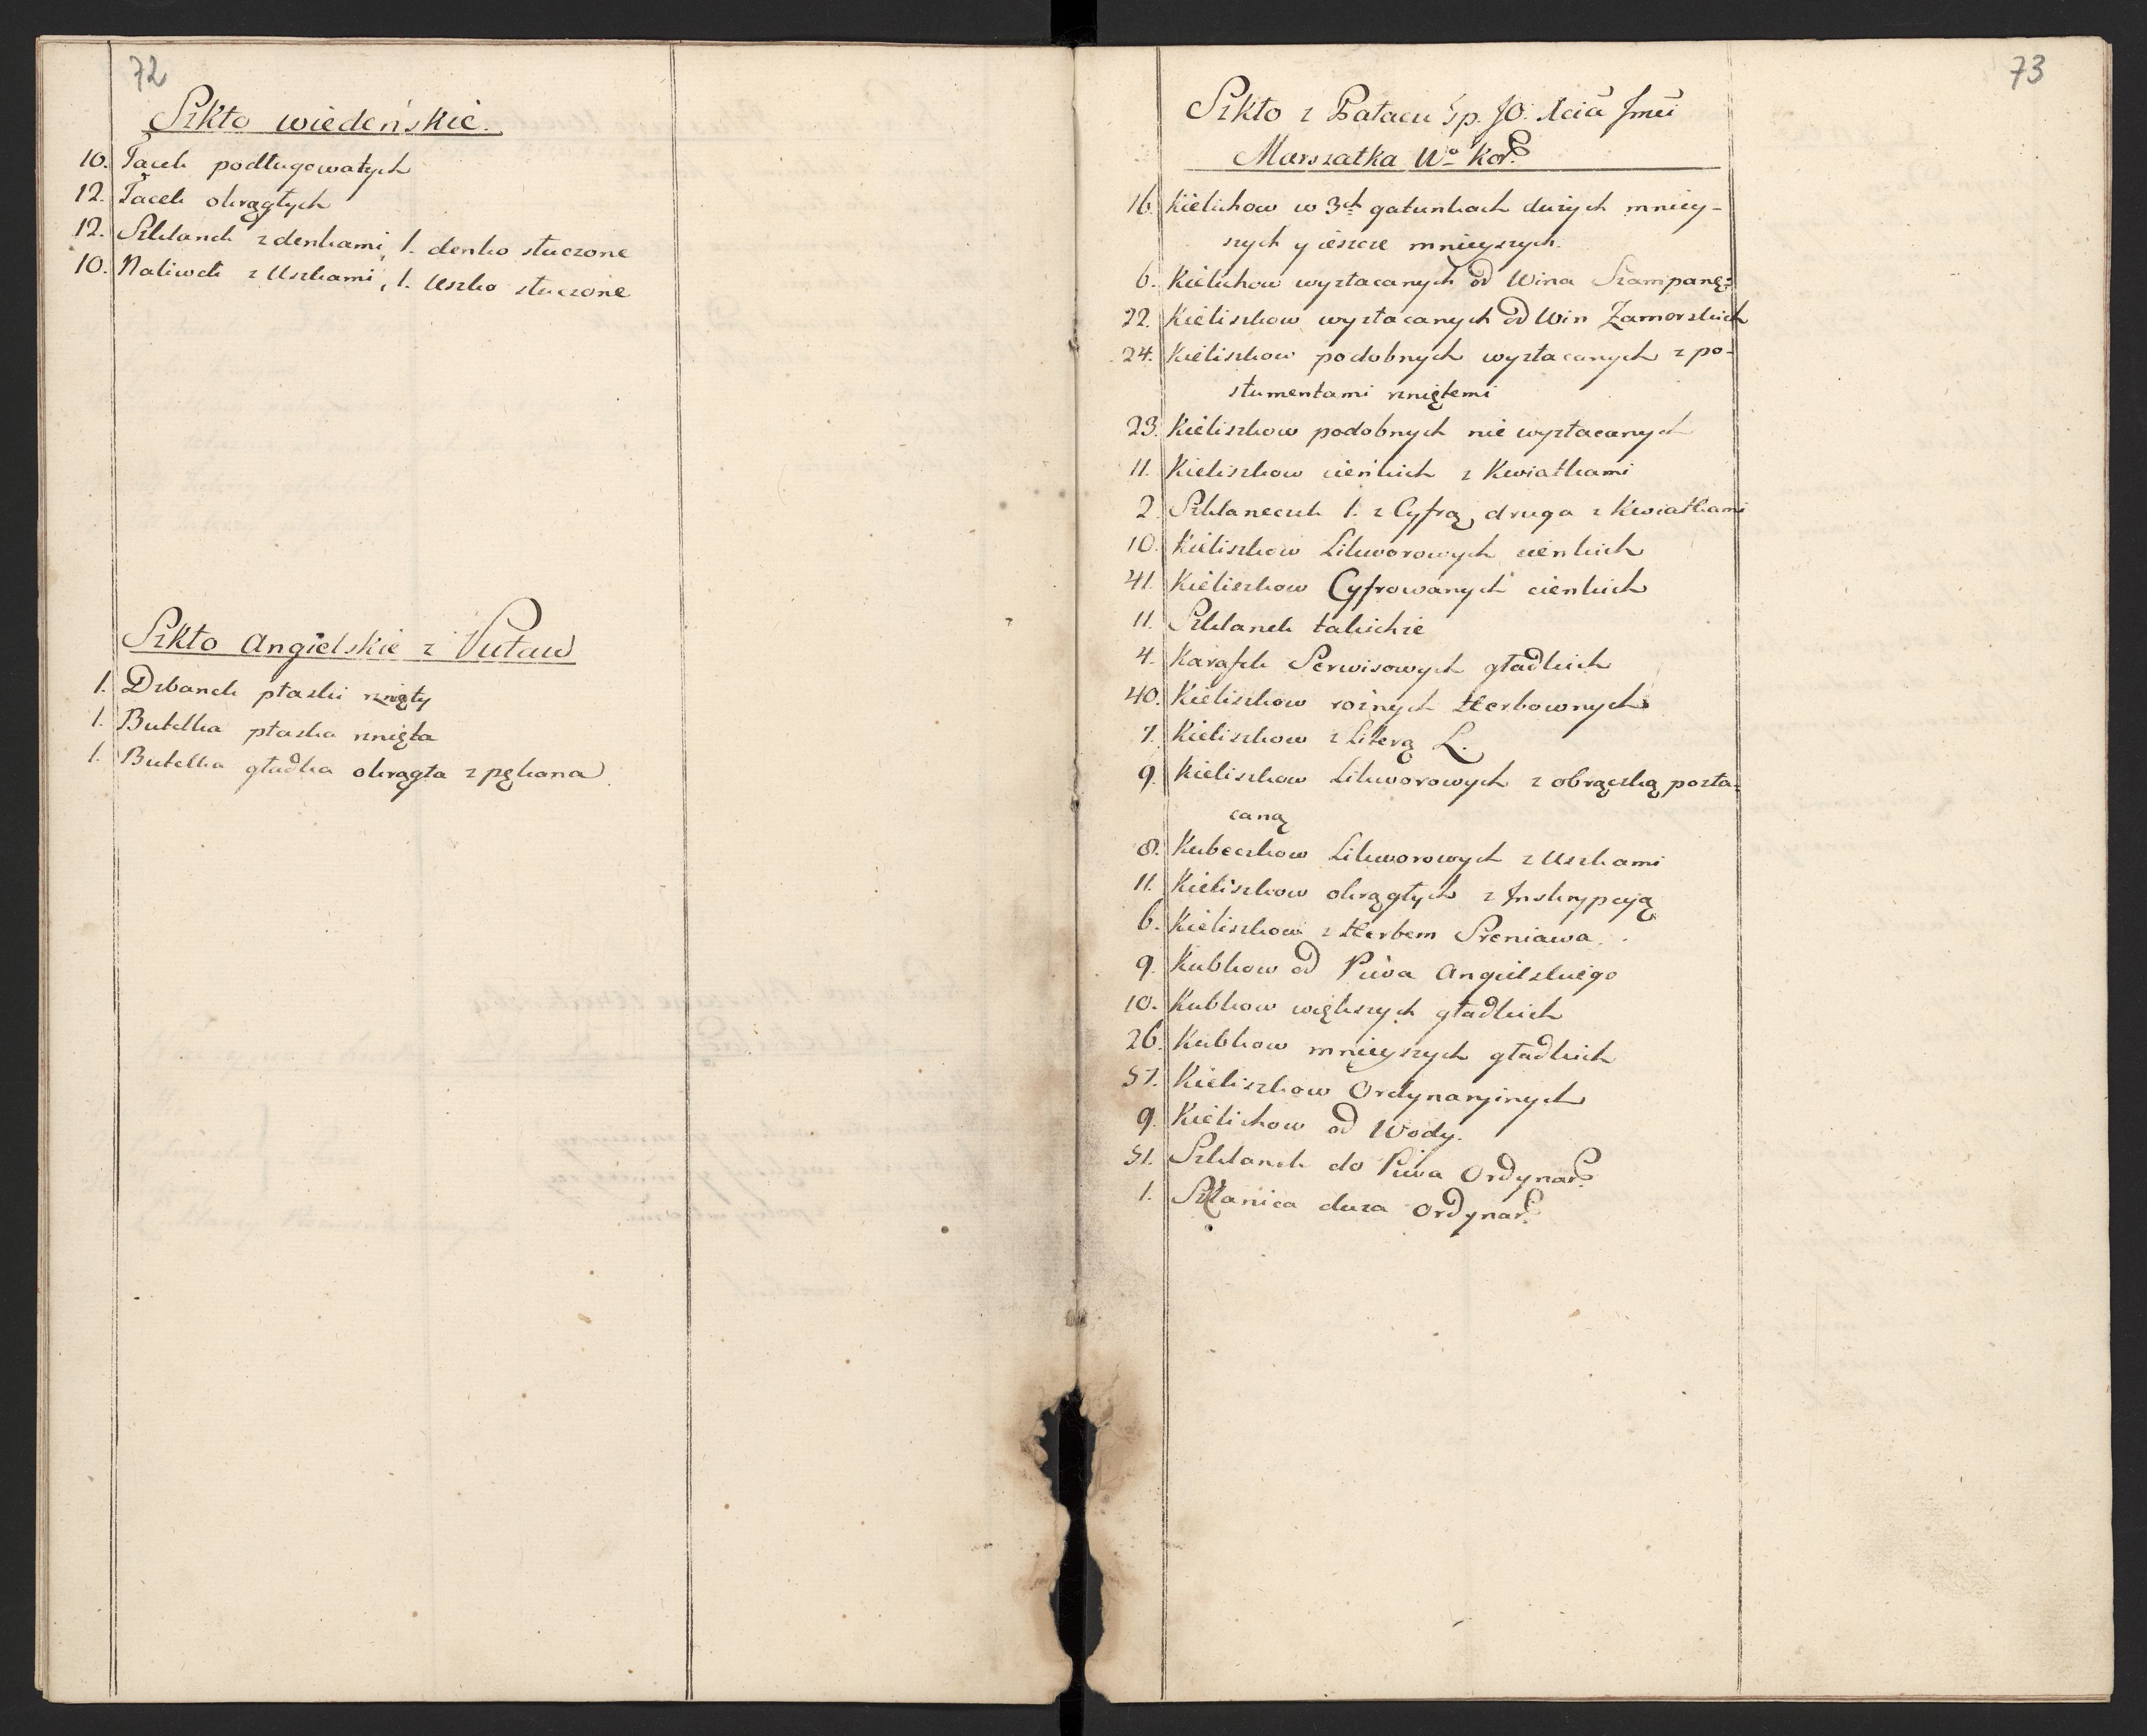 72
Szkło wiedeńskie.
10. Tacek podługowatych
12. Tacek okrągłych
12. Szklanek z denkami, 1. denko stuczone
10. Naliwek z Uszkami, 1. Uszko stuczone
Szkło Angielskie z Puław
1. Dzbanek płaski rznięty
1. Butelka płaska rznięta
1. Butelka gładka okrągła z pękana
73
Szkło z Pałacu Śp. JO. Xcia Jmci
Marszałka Wo Kor.
16. Kielichow w 3ch gatunkach dużych mniey-
szych y ieszcze mnieyszych.
6. Kielichow wyzłacanych od Wina Szampang:
22. Kieliszkow wyzłacanych od Win Zamorskich
24. Kieliszkow podobnych wyzłacanych z po-
stumentami rzniętemi
23. Kieliszkow podobnych nie wyzłacanych
11. Kieliszkow cieńkich z Kwiatkami
2. Szklaneczek 1. z Cyfrą, druga z Kwiatkami
10. Kieliszkow Likworowych cienkich
41. Kieliszkow Cyfrowanych cienkich
11. Szklanek takichże
4. Karafek Serwisowych gładkich
40. Kieliszkow rożnych Herbownych
7. Kieliszkow z Literą L.
9. Kieliszkow Likworowych z obrączką pozła-
caną
8. Kubeczkow Likworowych z Uszkami
11. Kieliszkow okrągłych z Inskrypcyą
6. Kieliszkow z Herbem Sreniawa.
9. Kubkow od Piwa Angielskiego
10. Kubkow większych gładkich
26. Kubkow mnieyszych gładkich
57. Kieliszkow Ordynaryinych
9. Kielichow od Wody.
51. Szklanek do Piwa Ordynar.
1. Szklanica duża Ordynar.